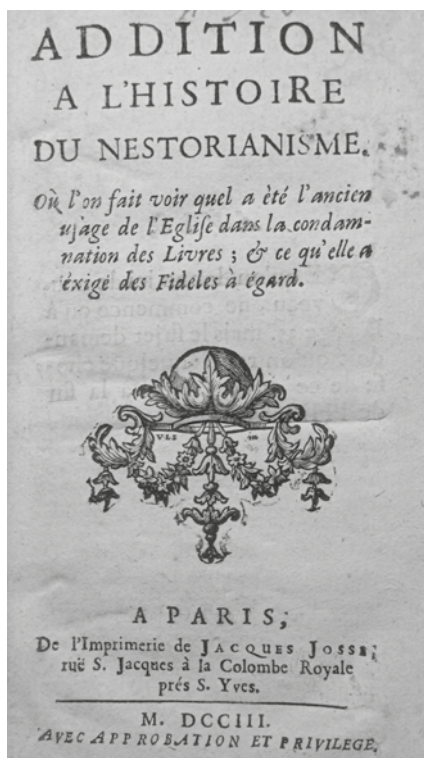 ADDITION
A L'HISTOIRE
DU NESTORIANISME.
Où l'on fait voir quel a été l'ancien
usage de l'Eglise dans la condam-
nation des Livres ; & ce qu'elle a
éxigé des Fideles à égard.
A PARIS,
De l'Imprimerie de JACQUES JOSSE,
ruë S. Jacques à la Colombe Royale
prés S. Yves.
M. DCCIII.
AVEC APPROBATION ET PRIVILEGE.